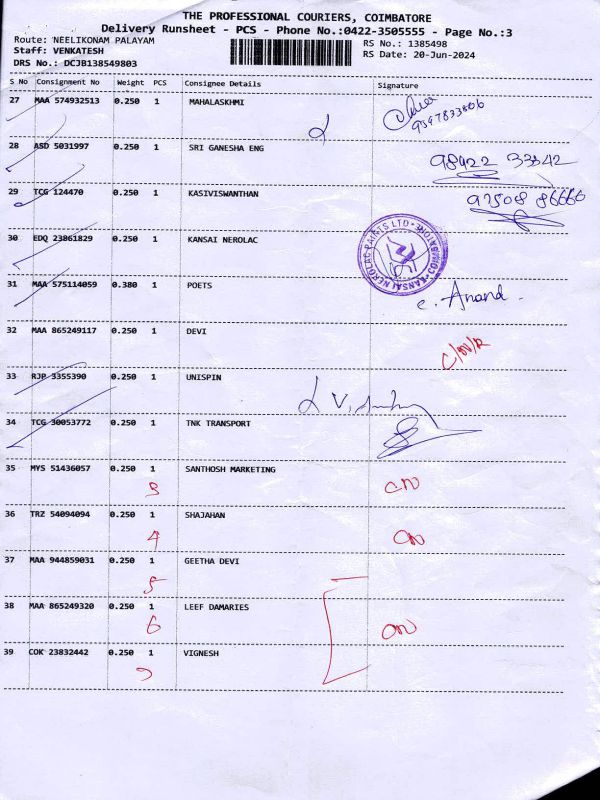 THE PROFESSIONAL COURIERS, COIMBATORE
Delivery Runsheet - PCS - Phone No.:0422-3505555 - Page No.:3
Route: NEELIKONAM PALAYAM
RS No.: 1385498
Staff: VENKATESH
RS Date: 20-Jun-2024
DRS No.: DCJB138549803
S No Consignment No Weight PCS Consignee Details Signature
27 MAA 574932513 0.250 1 MAHALASKHMI
9597833806
28 ASD 5031997 0.250 1 SRI GANESHA ENG
98422 33342
29 TCG 124470 0.250 1 KASIVISWANTHAN
97508 86660
30 EDQ 23861829 0.250 1 KANSAI NEROLAC
KANSAI NEROLAC PAINTS LTD COIMBATORE
31 MAA 575114059 0.380 1 POETS
c. Anand
32 MAA 865249117 0.250 1 DEVI
33 RJP 3355390 0.250 1 UNISPIN
34 TCG 30053772 0.250 1 TNK TRANSPORT
35 MYS 51436057 0.250 1 SANTHOSH MARKETING
3
36 TRZ 54094094 0.250 1 SHAJAHAN
4
37 MAA 944859031 0.250 1 GEETHA DEVI
5
38 MAA 865249320 0.250 1 LEEF DAMARIES
6
39 COK 23832442 0.250 1 VIGNESH